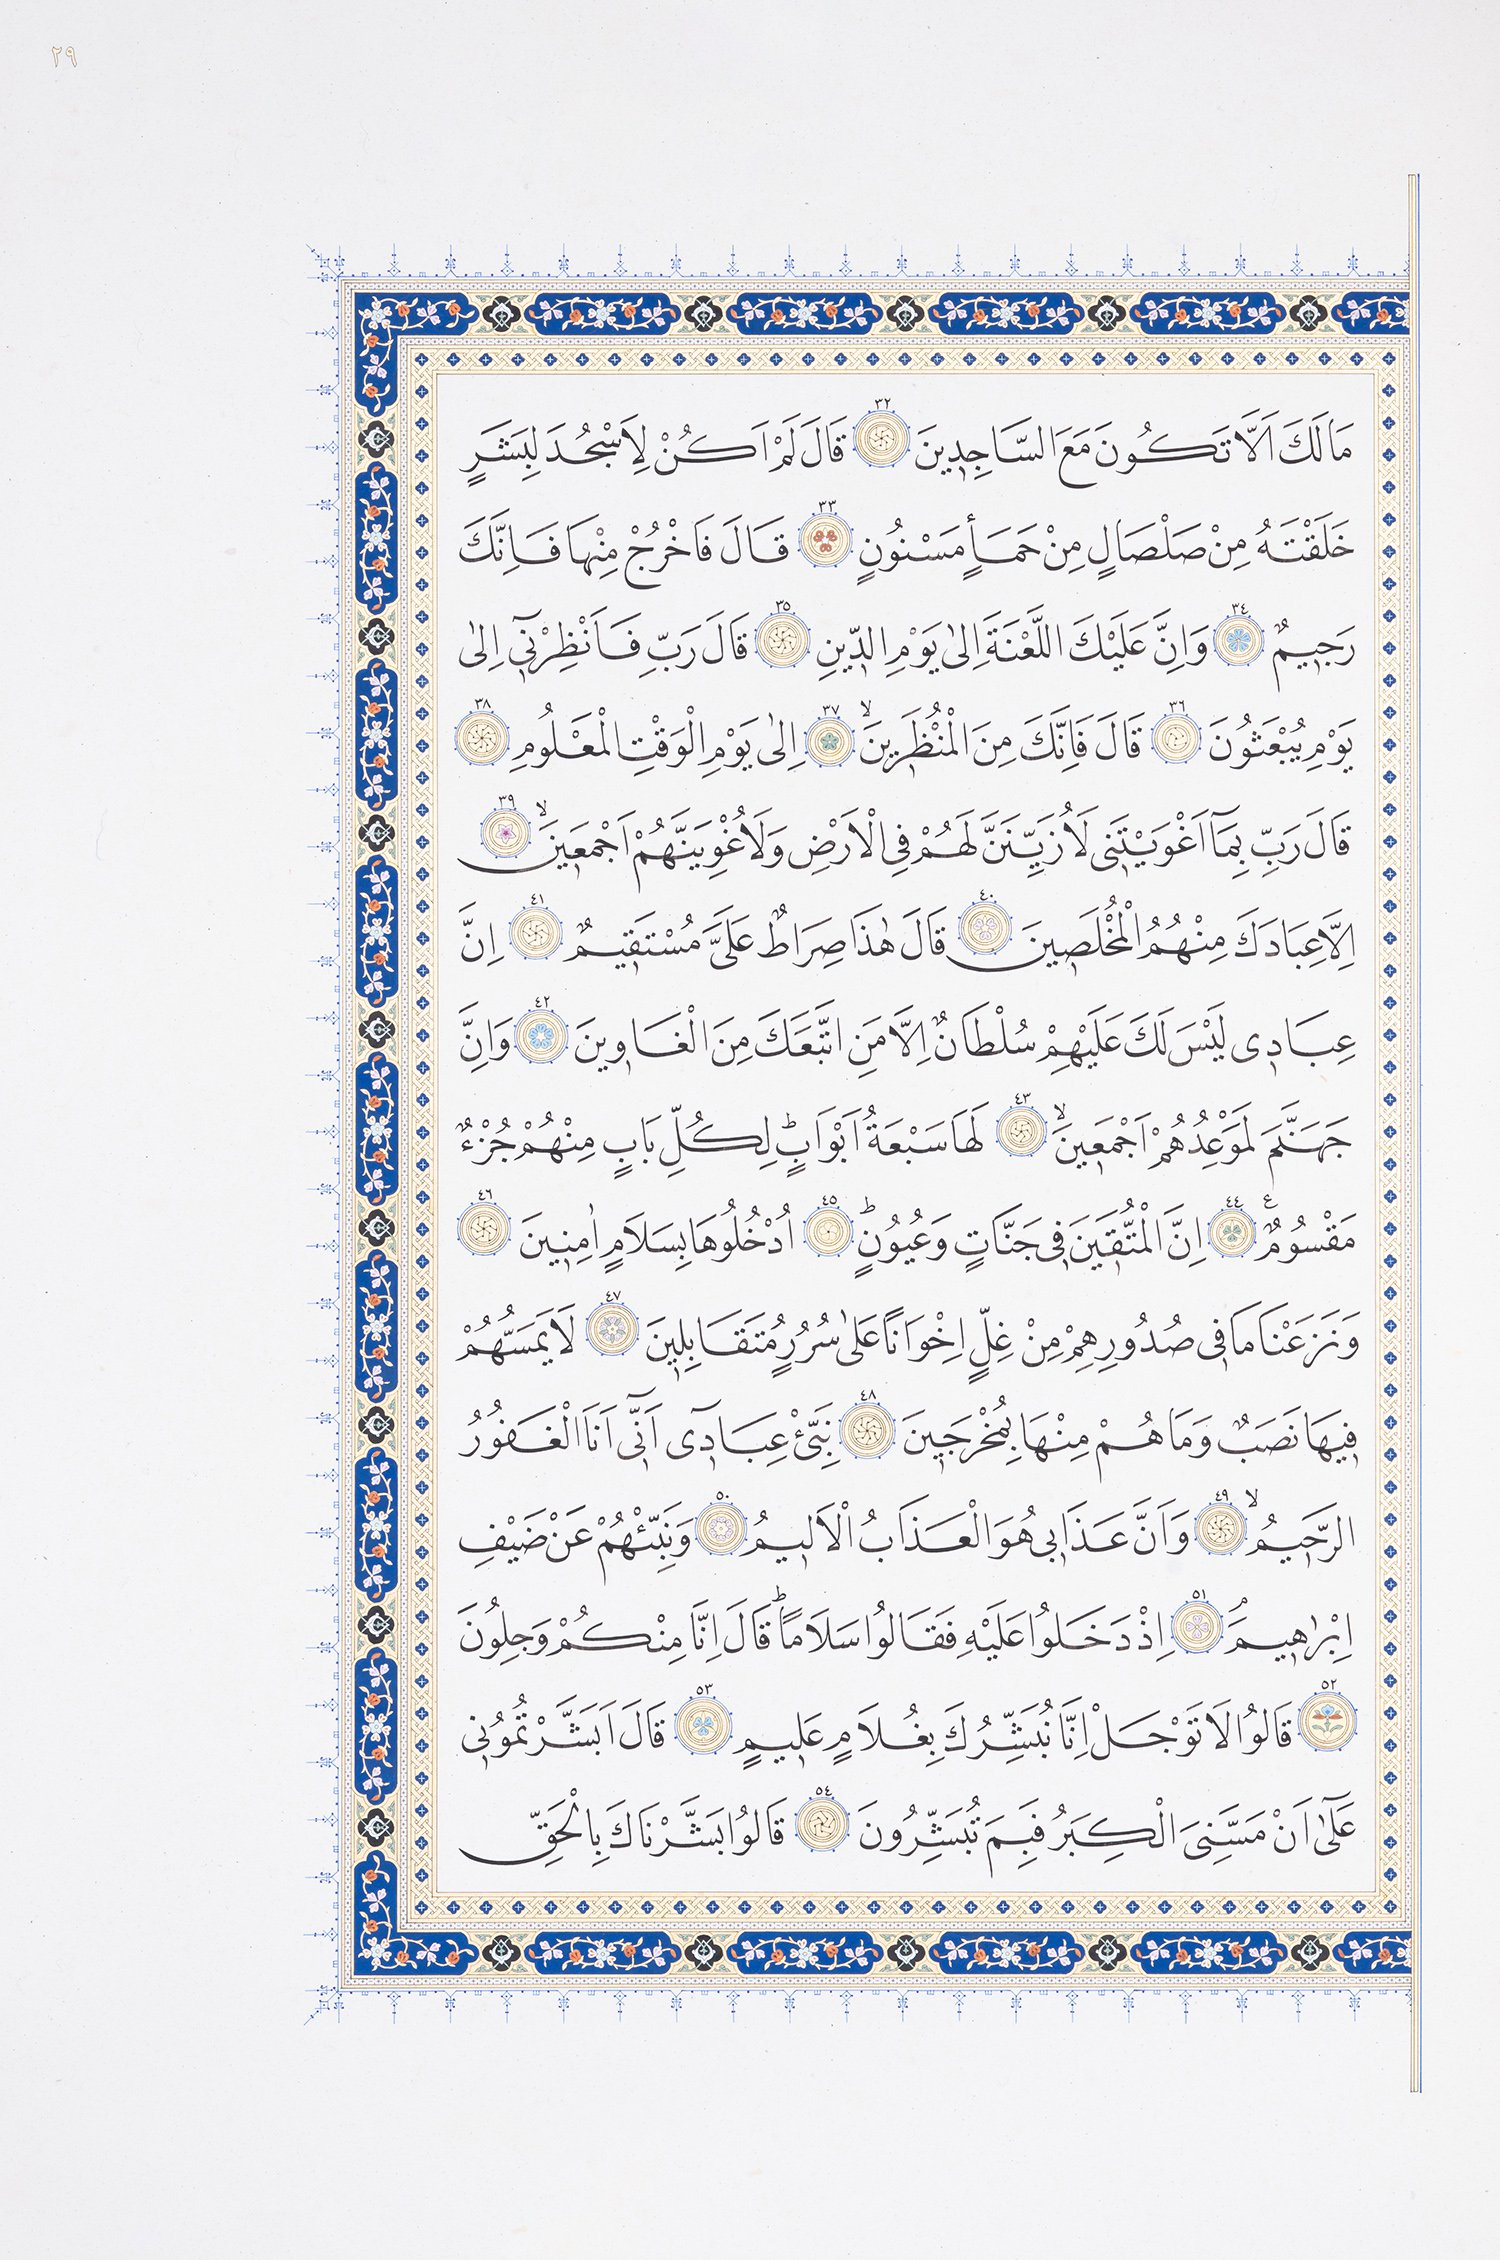 ٢٩
مَالَكَ اَلَّا تَكُونَ مَعَ السَّاجِدِينَ ٣٢ قَالَ لَمْ اَكُنْ لِاَسْجُدَ لِبَشَرٍ
خَلَقْتَهُ مِنْ صَلْصَالٍ مِنْ حَمَأٍ مَسْنُونٍ ٣٣ قَالَ فَاخْرُجْ مِنْهَا فَاِنَّكَ
رَجِيمٌ ٣٤ وَاِنَّ عَلَيْكَ اللَّعْنَةَ اِلٰى يَوْمِ الدِّينِ ٣٥ قَالَ رَبِّ فَاَنْظِرْنٓي اِلٰى
يَوْمِ يُبْعَثُونَ ٣٦ قَالَ فَاِنَّكَ مِنَ الْمُنْظَرِينَۙ ٣٧ اِلٰى يَوْمِ الْوَقْتِ الْمَعْلُومِ ٣٨
قَالَ رَبِّ بِمَٓا اَغْوَيْتَنى لَاُزَيِّنَنَّ لَهُمْ فِى الْاَرْضِ وَلَاُغْوِيَنَّهُمْ اَجْمَعِينَۙ ٣٩
اِلَّا عِبَادَكَ مِنْهُمُ الْمُخْلَصِينَ ٤٠ قَالَ هٰذَا صِرَاطٌ عَلَىَّ مُسْتَقِيمٌ ٤١ اِنَّ
عِبَادِى لَيْسَ لَكَ عَلَيْهِمْ سُلْطَانٌ اِلَّا مَنِ اتَّبَعَكَ مِنَ الْغَاوِينَ ٤٢ وَاِنَّ
جَهَنَّمَ لَمَوْعِدُهُمْ اَجْمَعِينَۙ ٤٣ لَهَا سَبْعَةُ اَبْوَابٍۜ لِكُلِّ بَابٍ مِنْهُمْ جُزْءٌ
مَقْسُومٌ ع ٤٤ اِنَّ الْمُتَّقِينَ فِى جَنَّاتٍ وَعُيُونٍۜ ٤٥ اُدْخُلُوهَا بِسَلَامٍ اٰمِنِينَ ٤٦
وَنَزَعْنَا مَا فِى صُدُورِهِمْ مِنْ غِلٍّ اِخْوَانًا عَلٰى سُرُرٍ مُتَقَابِلِينَ ٤٧ لَا يَمَسُّهُمْ
فِيهَا نَصَبٌ وَمَا هُمْ مِنْهَا بِمُخْرَجِينَ ٤٨ نَبِّئْ عِبَادٓى اَنّٓى اَنَا الْغَفُورُ
الرَّحِيمُۙ ٤٩ وَاَنَّ عَذَابِى هُوَ الْعَذَابُ الْاَلِيمُ ٥٠ وَنَبِّئْهُمْ عَنْ ضَيْفِ
اِبْرٰهِيمَ ٥١ اِذْ دَخَلُوا عَلَيْهِ فَقَالُوا سَلَامًاۜ قَالَ اِنَّا مِنْكُمْ وَجِلُونَ
٥٢ قَالُوا لَا تَوْجَلْ اِنَّا نُبَشِّرُكَ بِغُلَامٍ عَلِيمٍ ٥٣ قَالَ اَبَشَّرْتُمُونِى
عَلٰٓى اَنْ مَسَّنِىَ الْكِبَرُ فَبِمَ تُبَشِّرُونَ ٥٤ قَالُوا بَشَّرْنَاكَ بِالْحَقِّ